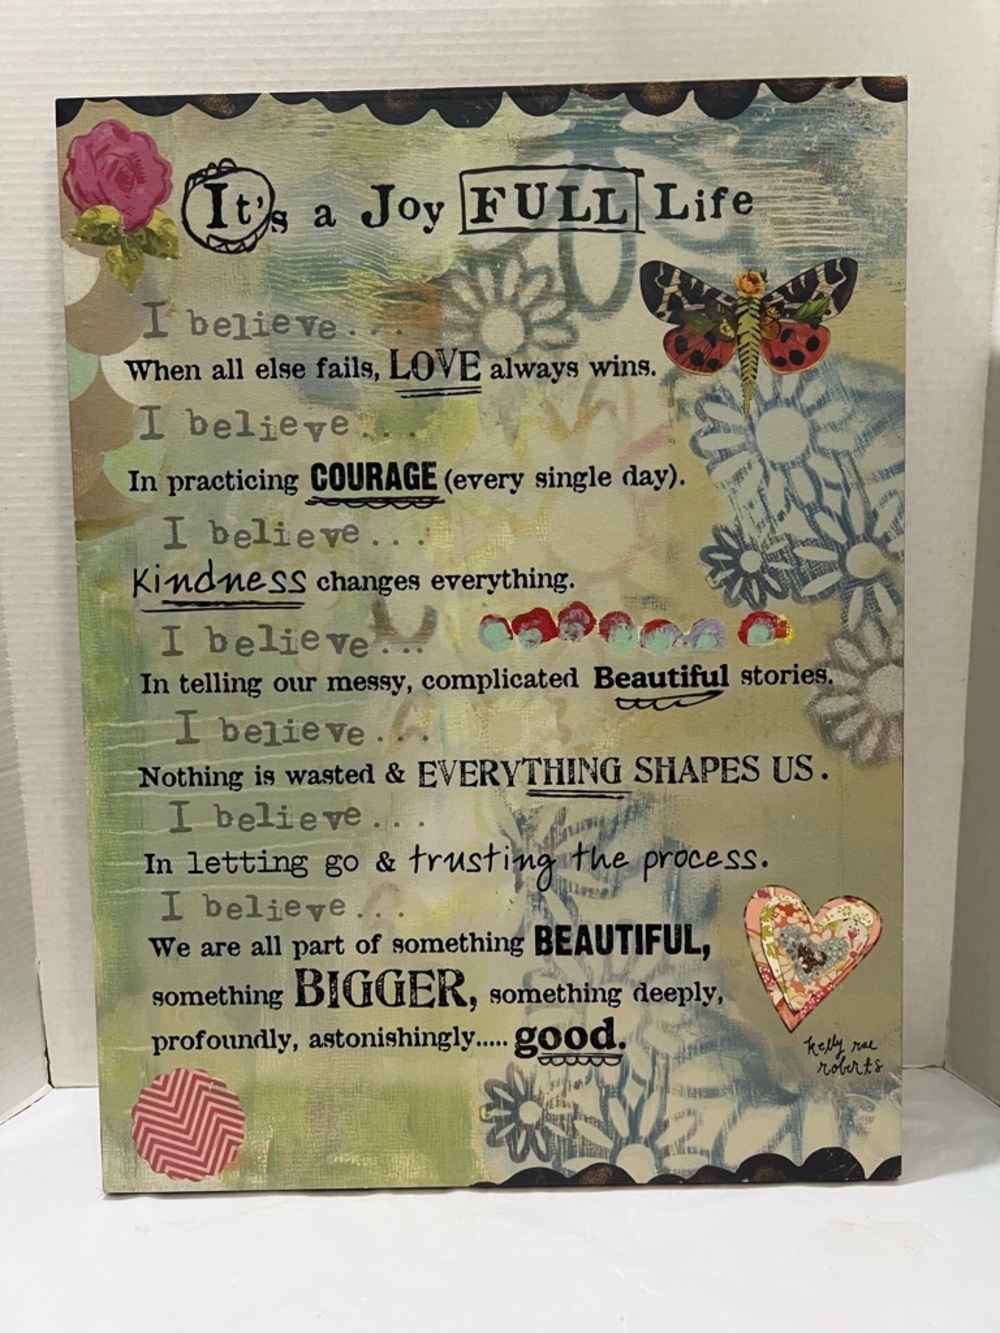 It's a Joy FULL Life
I believe...
When all else fails, LOVE always wins.
I believe...
In practicing COURAGE (every single day).
I believe...
Kindness changes everything.
I believe...
In telling our messy, complicated Beautiful stories.
I believe...
Nothing is wasted & EVERYTHING SHAPES US.
I believe...
In letting go & trusting the process.
I believe...
We are all part of something BEAUTIFUL,
something BIGGER, something deeply,
profoundly, astonishingly..... good.
kelly rae
roberts